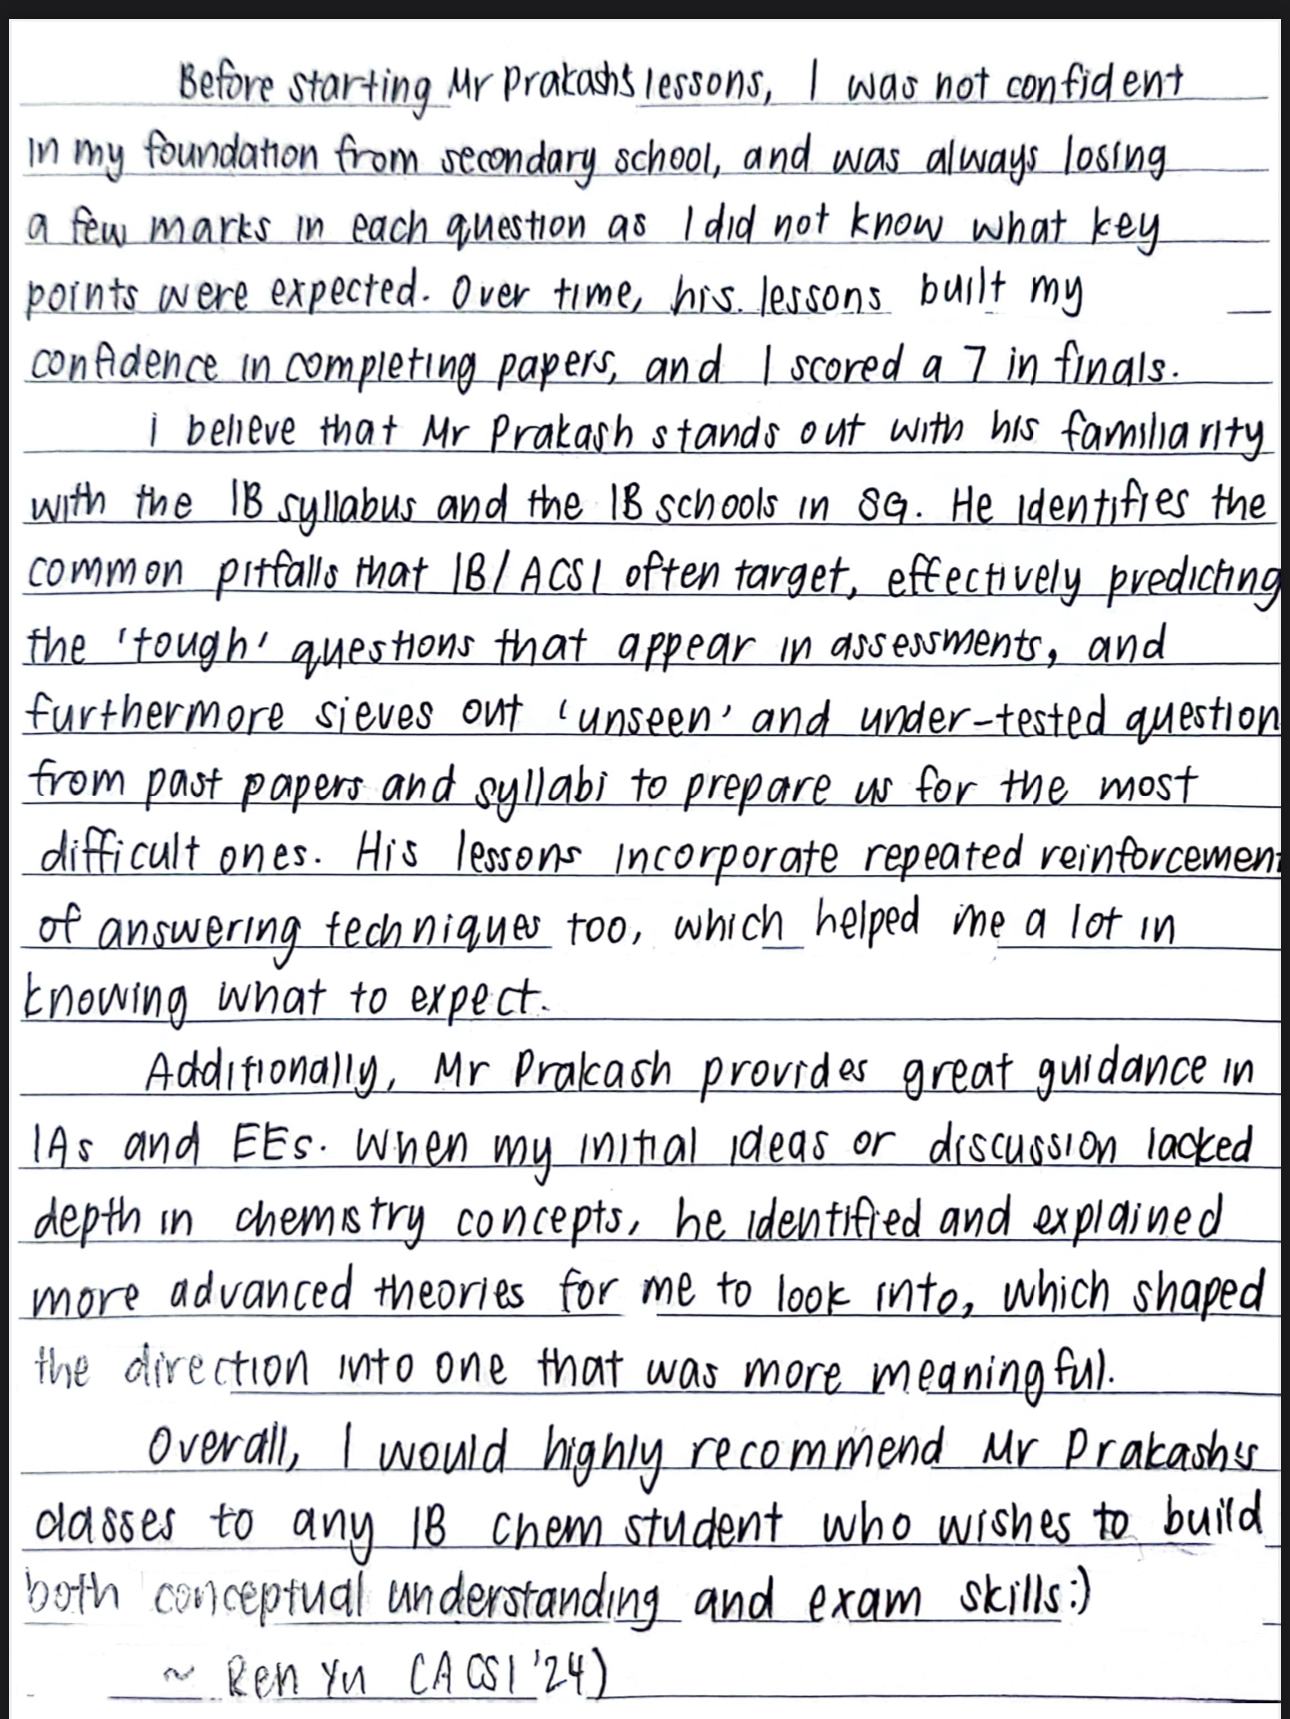 Before starting Mr Prakash's lessons, I was not confident
in my foundation from secondary school, and was always losing
a few marks in each question as I did not know what key
points were expected. Over time, his lessons built my
confidence in completing papers, and I scored a 7 in finals.
I believe that Mr Prakash stands out with his familiarity
with the IB syllabus and the IB schools in SG. He identifies the
common pitfalls that IB/ACSI often target, effectively predicting
the 'tough' questions that appear in assessments, and
furthermore sieves out 'unseen' and under-tested question
from past papers and syllabi to prepare us for the most
difficult ones. His lessons incorporate repeated reinforcement
of answering techniques too, which helped me a lot in
knowing what to expect.
Additionally, Mr Prakash provides great guidance in
IAs and EEs. When my initial ideas or discussion lacked
depth in chemistry concepts, he identified and explained
more advanced theories for me to look into, which shaped
the direction into one that was more meaningful.
Overall, I would highly recommend Mr Prakash's
classes to any IB chem student who wishes to build
both conceptual understanding and exam skills:)
~ Ren Yu (ACSI '24)